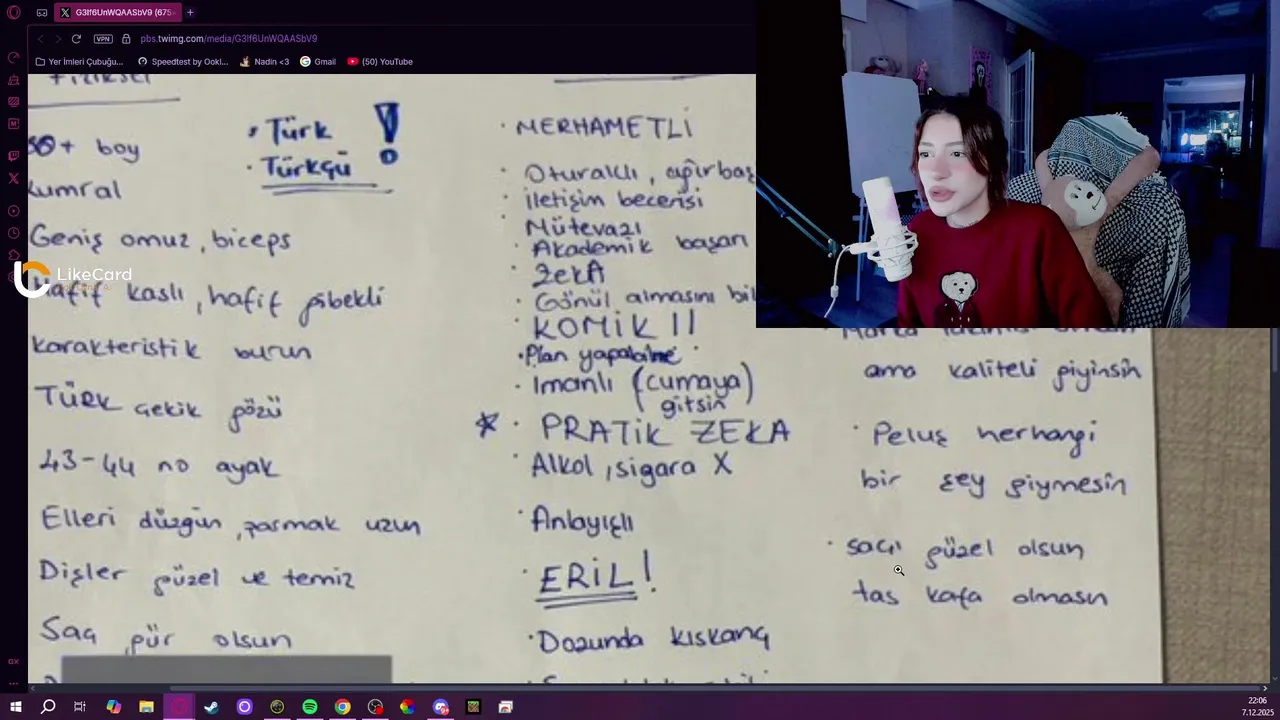 G3lf6UnWQAASbV9 (675×
pbs.twimg.com/media/G3lf6UnWQAASbV9
VPN
Yer İmleri Çubuğu...
Speedtest by Ookl...
Nadin <3
Gmail
(50) YouTube
Fiziksel
80+ boy
kumral
Geniş omuz, biceps
Hafif kaslı, hafif göbekli
karakteristik burun
TÜRK çekik gözü
43-44 no ayak
Elleri düzgün, parmak uzun
Dişler güzel ve temiz
Saç gür olsun
• Türk !
• Türkçü
• MERHAMETLİ
• Oturaklı, ağırbaş
• iletişim becerisi
Mütevazı
• Akademik başarı
• ZekA
• Gönül almasını bil
• KOMİK !!
• Plan yapabilme
• Imanlı (cumaya gitsin)
* • PRATiK ZEKA
• Alkol, sigara X
• Anlayışlı
• ERİL!
• Dozunda kıskanç
ama kaliteli giyinsin
• Peluş herhangi
bir şey giymesin
• saçı güzel olsun
tas kafa olmasın
LikeCard
22:06
7.12.2025